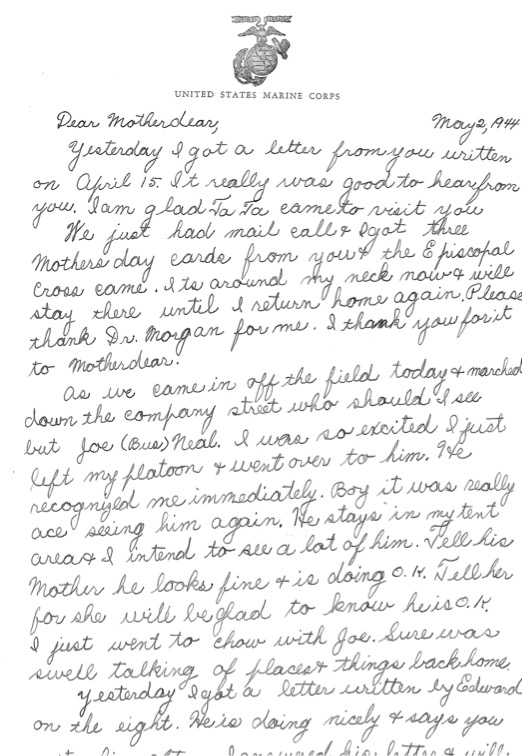 UNITED STATES MARINE CORPS
Dear Motherdear, May 2, 1944
Yesterday I got a letter from you written
on April 15. It really was good to hear from
you. I am glad Ta Ta came to visit you
We just had mail call & I got three
Mothers day cards from you & the Episcopal
Cross came. Its around my neck now & will
stay there until I return home again. Please
thank Dr. Morgan for me. I thank you for it
to Motherdear.
As we came in off the field today & marched
down the company street who should I see
but Joe (Bus) Neal. I was so excited I just
left my platoon & went over to him. He
recognized me immediately. Boy it was really
ace seeing him again. He stays in my tent
area & I intend to see a lot of him. Tell his
Mother he looks fine & is doing O.K. Tell her
for she will be glad to know he is O.K.
I just went to chow with Joe. Sure was
swell talking of places & things back home.
Yesterday I got a letter written by Edward
on the eight. He is doing nicely & says you
I answered his letter & will